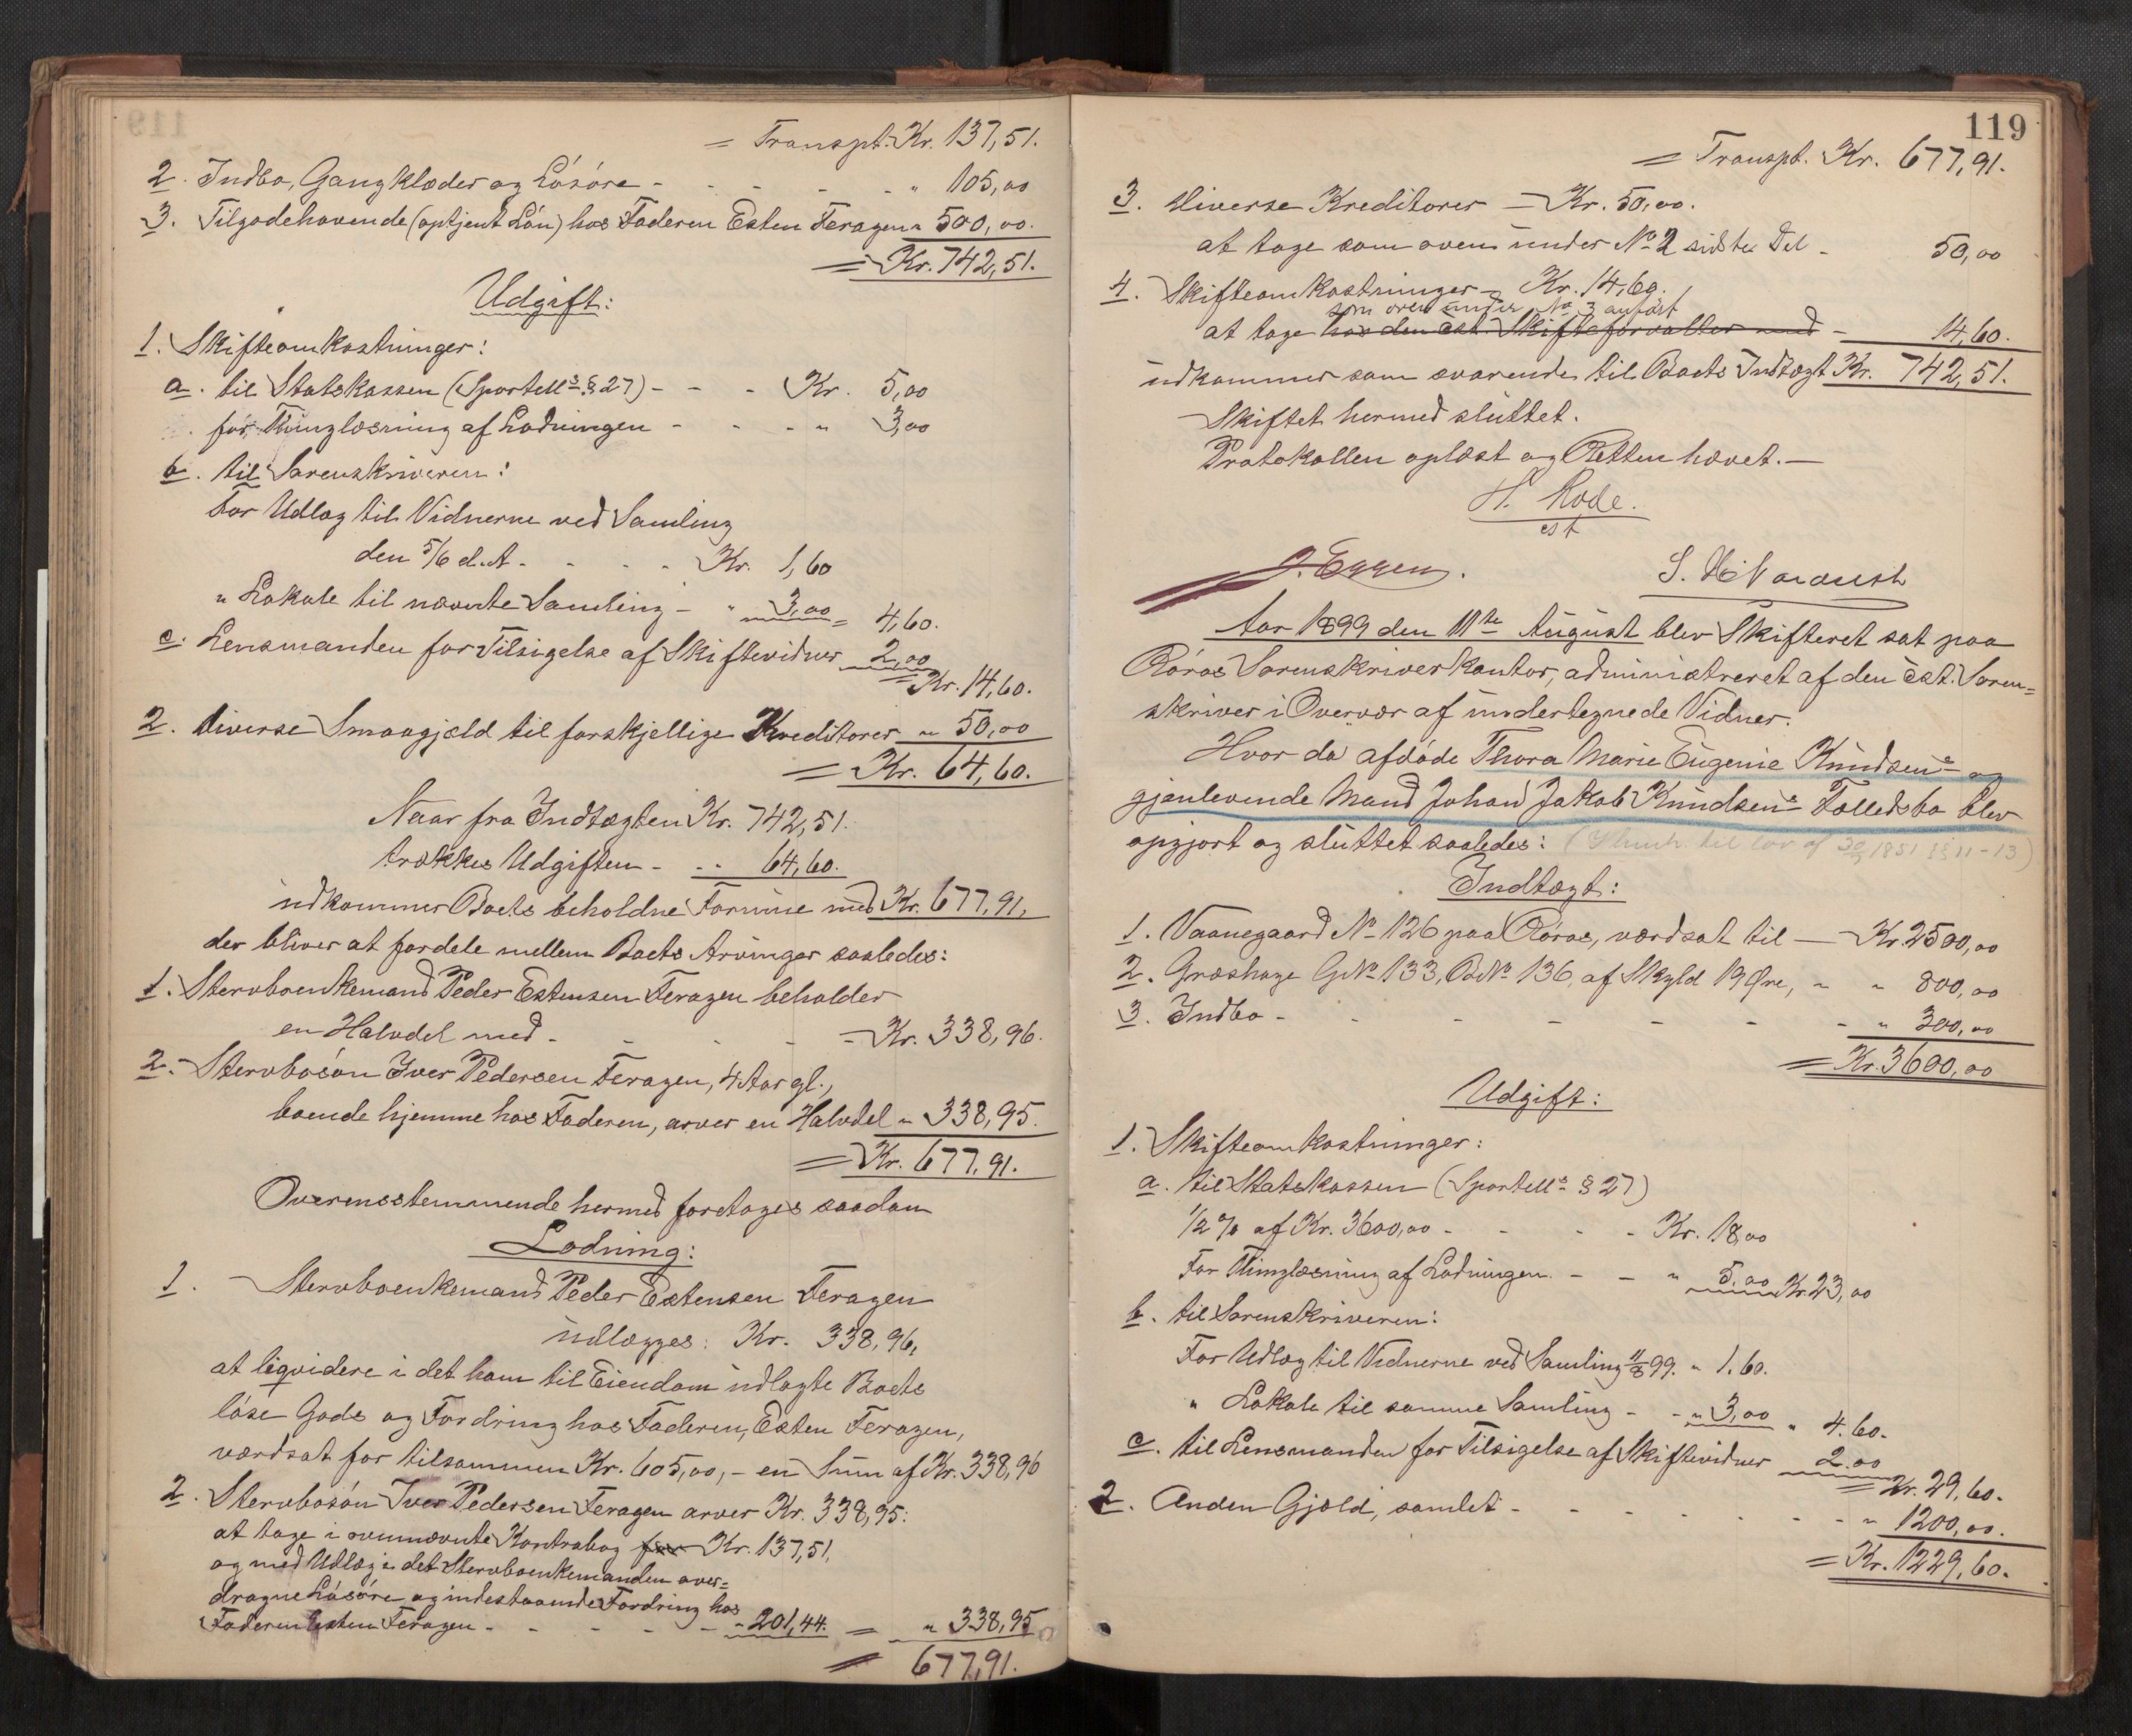 = Transpt. Kr. 137,51.
2. Indbo, Gangklæder og Løsøre - - - - - " 105,00
3. Tilgodehavende (optjent Løn) hos Faderen Esten Feragen " 500,00.
= Kr. 742,51.
Udgift:
1. Skifteomkostninger:
a. til Statskassen (Sportell. § 27) - - - Kr. 5,00
for Thinglæsning af Lodningen - - - " 3,00
b. til Sorenskriveren:
For Udlæg til Vidnerne ved Samling
den 5/6 d.A. - - - - Kr. 1,60
" Lokale til nævnte Samling - " 3,00 = 4,60.
c. Lensmanden for Tilsigelse af Skiftevidner 2,00
= Kr. 14,60.
2. diverse Smaagjæld til forskjellige Kreditorer " 50,00
= Kr. 64,60.
Naar fra Indtægten Kr. 742,51.
trækkes Udgiften - - " 64,60.
udkommer Boets beholdne Formue med Kr. 677,91,
der bliver at fordele mellem Boets Arvinger saaledes:
1. Stervboenkemand Peder Estensen Feragen beholder
en Halvdel med - - - - = Kr. 338,96.
2. Stervbosøn Iver Pedersen Feragen, 4 Aar gl.,
boende hjemme hos Faderen, arver en Halvdel " 338,95.
= Kr. 677,91.
Overensstemmende hermed foretages saadan
Lodning:
1. Stervboenkemand Peder Estensen Feragen
udlægges: Kr. 338,96,
at liqvidere i det ham til Eiendom udlagte Boets
løse Gods og Fordring hos Faderen, Esten Feragen,
værdsat for tilsammen Kr. 605,00, - en Sum af Kr. 338,96
2. Stervbosøn Iver Pedersen Feragen arver Kr. 338,95:
at tage i ovennævnte Kontrabog for Kr. 137,51,
og med Udlæg i det Stervboenkemanden over=
dragne Løsøre og indestaaende Fordring hos
Faderen Esten Feragen - - - - - " 201,44. = " 338,95
= 677,91.
119
= Transpt. Kr. 677,91.
3. diverse Kreditorer = Kr. 50,00.
at tage som oven under No 2 sidste Del - 50,00
4. Skifteomkostninger = Kr. 14,60.
som oven under No 3 anført
at tage hos den cst. Skifteforvalter med - 14,60.
udkommer som svarende til Boets Indtægt Kr. 742,51.
Skiftet hermed sluttet.
Protokollen oplæst og Retten hævet. —
H. Rode.
cst
J. Eggen.
Aar 1899 den 11te August blev Skifteret sat paa
Røros Sorenskriverkontor, administreret af den cst. Soren=
skriver i Overvær af undertegnede Vidner.
Hvor da afdøde Thora Marie Eugenie Knudsens og
gjenlevende Mand Johan Jakob Knudsens Fælledsbo blev
opgjort og sluttet saaledes: ( til lov af 30/7 1851 §§ 11-13)
Indtægt:
1. Vaanegaard No 126 paa Røros, værdsat til — Kr. 2500,00
2. Græshage GNo 133, BNo 136, af Skyld 19 Øre, " " 800,00
3. Indbo - - - - - - - " 300,00
= Kr. 3600,00
Udgift:
1. Skifteomkostninger:
a. til Statskassen (Sportell. § 27)
1/2 % af Kr. 3600,00 - - - - Kr. 18,00
For Thinglæsning af Lodningen - - " 5,00 Kr. 23,00
b. til Sorenskriveren:
For Udlæg til Vidnerne ved Samling 11/8 99. " 1.60.
" Lokale til samme Samling - - " 3,00 " 4.60.
c. til Lensmanden for Tilsigelse af Skiftevidner 2.00
= Kr. 29,60.
2. Anden Gjæld, samlet - - - - - - - " 1200,00.
= Kr. 1229,60.